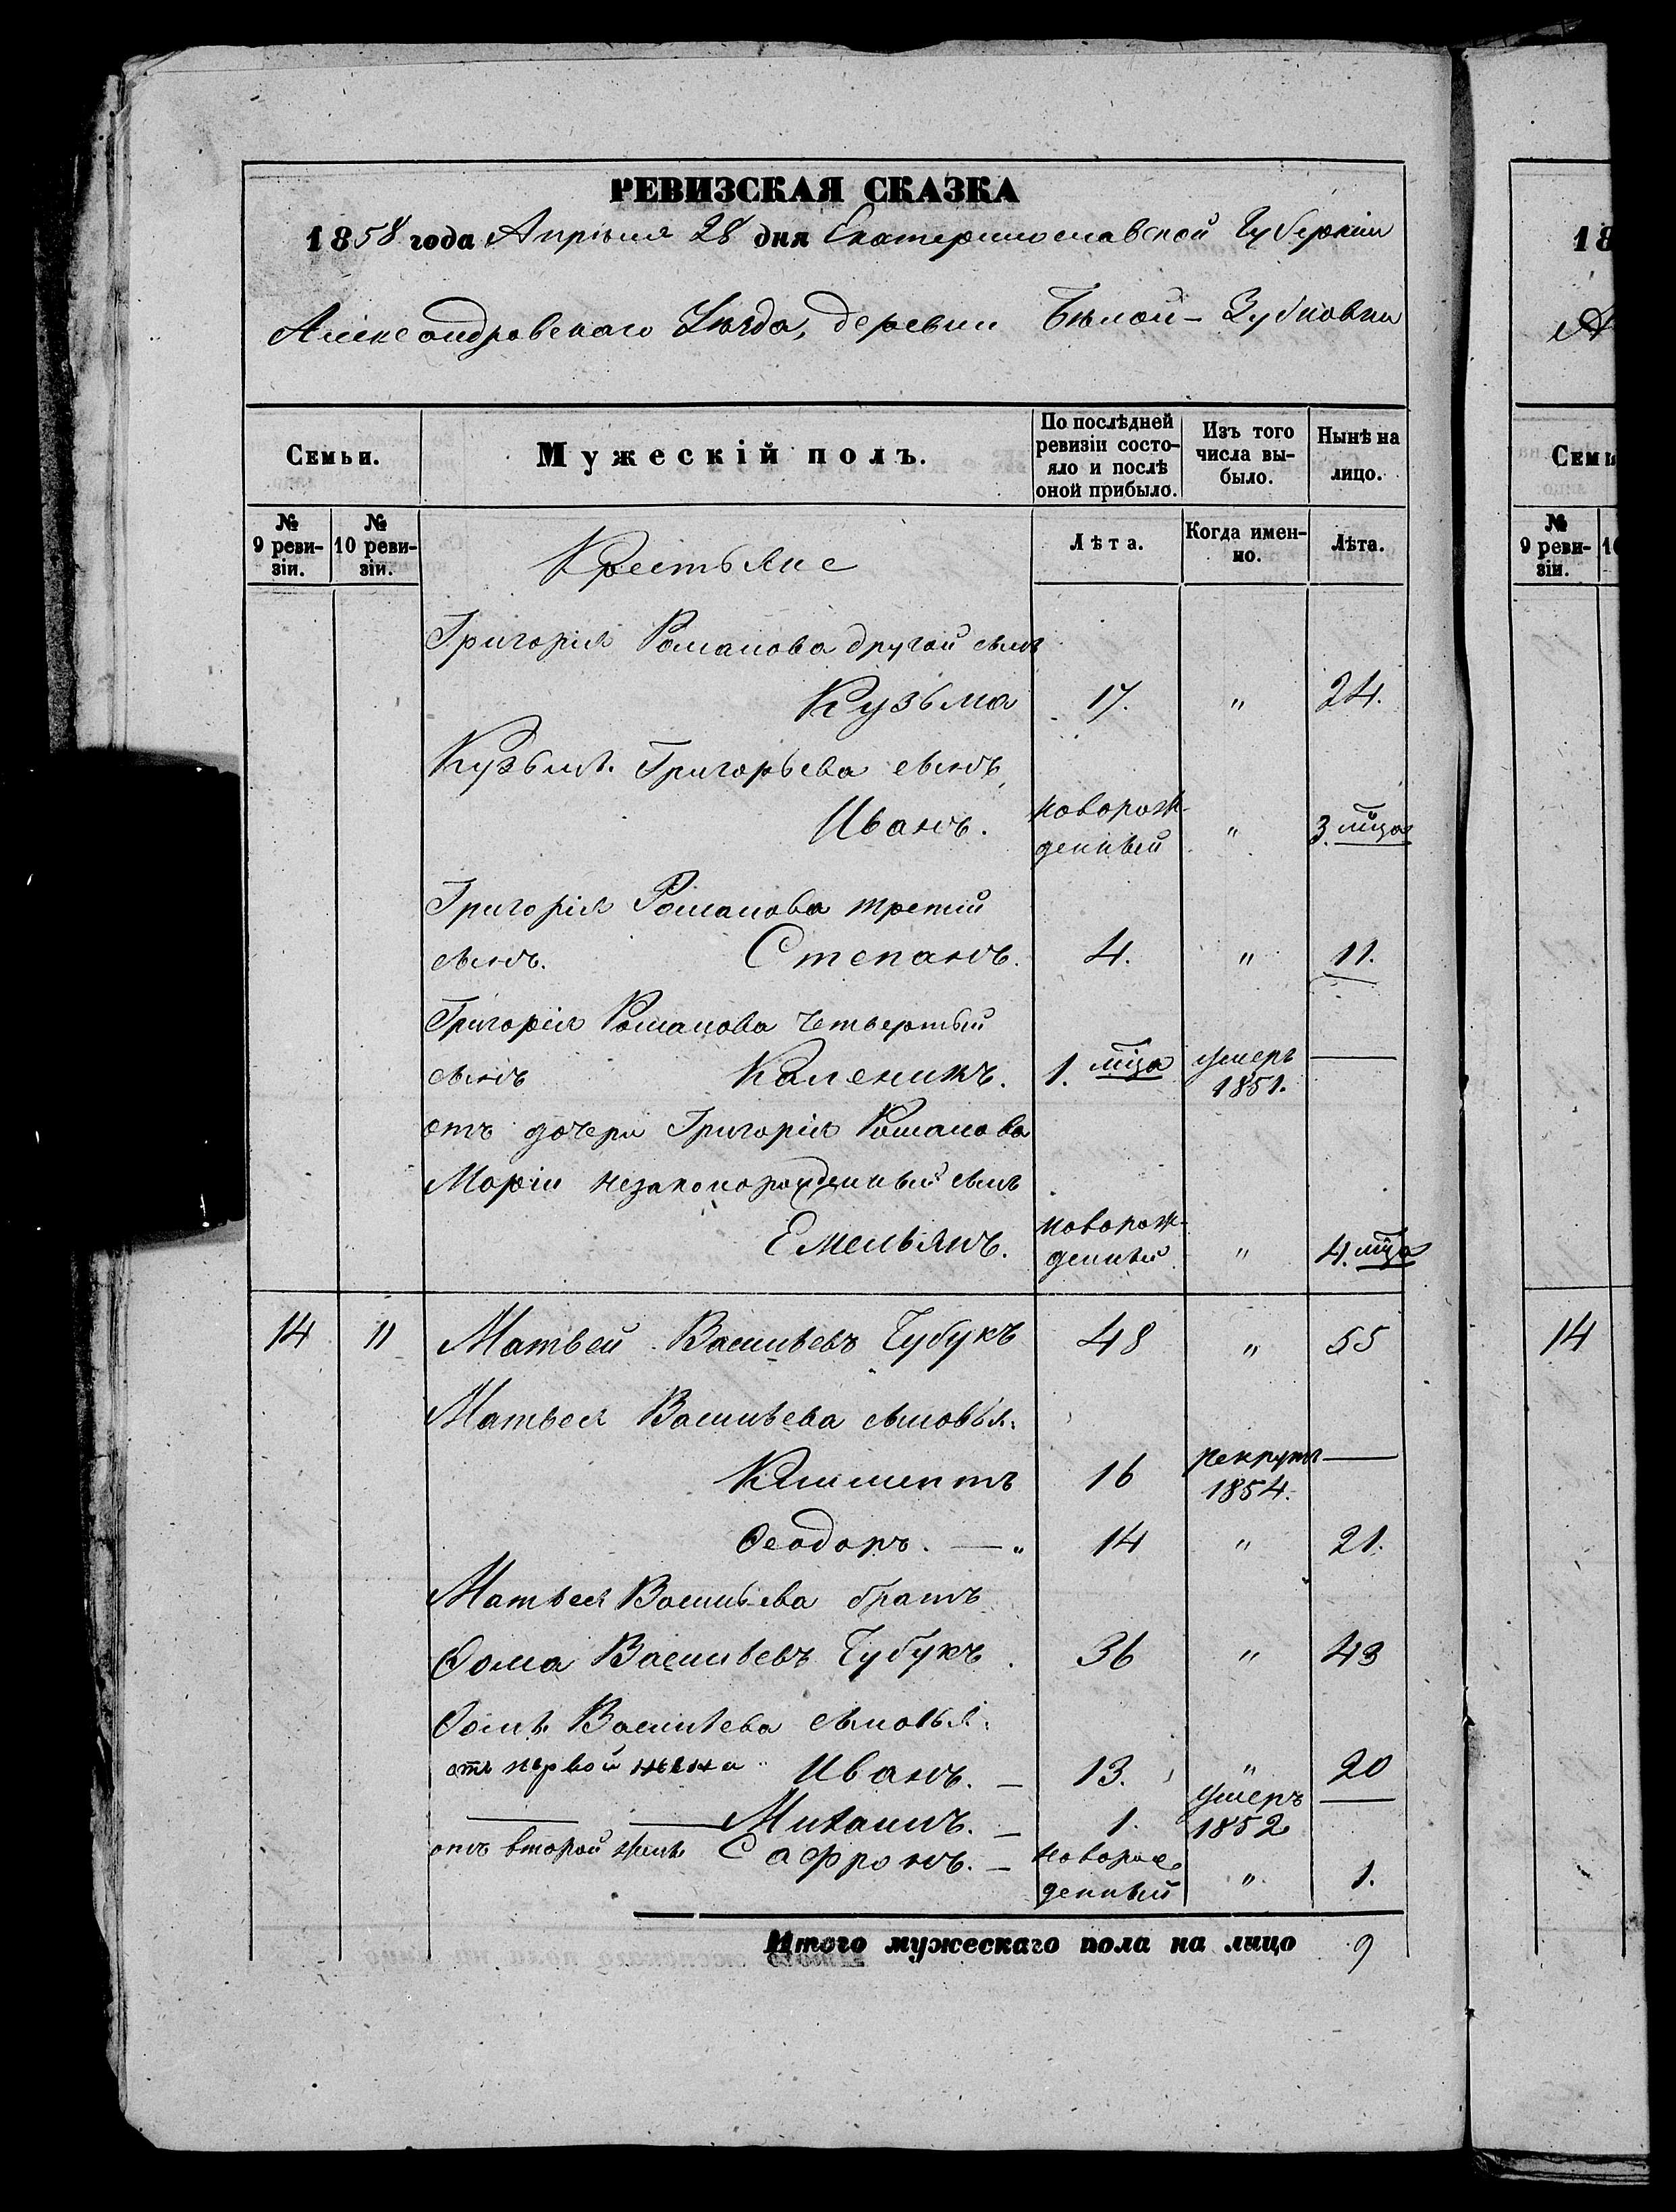 РЕВИЗСКАЯ СКАЗКА
1858 года Апрѣля 28 дня Екатеринославской Губерніи
Александровскаго Уѣзда, деревни Бѣлой-
Семьи.
Мужескій полъ.
По послѣдней ревизіи состо-
яло и послѣ оной прибыло.
Изъ того числа вы-
было.
Нынѣ на лицо.
№ 9 реви-
зіи.
№ 10 реви-
зіи.
Крестьяне
Лѣта.
Когда имен-
но.
Лѣта.
Григорія Романова другой сынъ
Кузьма 17. " 24.
Кузьмы Григорьева сынъ
Иванъ. новорож-
денный " 3. мца
Григорія Романова третій
сынъ. Степанъ. 4. " 11.
Григорія Романова четвертый
сынъ Каленикъ. 1. мца умеръ 1851. —
отъ дочери Григорія Романова
Маріи незаконорожденный сынъ
Емельянъ. новорож-
денный " 4. мца
14 11 Матвей Васильевъ Чубукъ 48 " 55
Матвея Васильева сыновья:
Климентъ 16 рекрутъ 1854. —
Ѳеодоръ. — " 14 " 21.
Матвея Васильева братъ
Ѳома Васильевъ Чубукъ. 36 " 43
Ѳомы Васильева сыновья:
отъ первой жены Иванъ. — 13. " 20
— — Михаилъ. — 1. умеръ 1852 —
отъ второй жены Сафронъ. — новорож-
денный " 1.
Итого мужескаго пола на лицо 9
18
А
Семьи
№ 9 реви-
зіи.
14